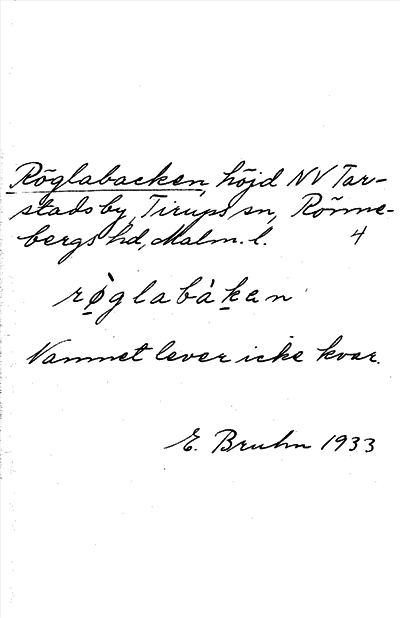 Röglabacken, höjd NV Tar-
stads by, Tirups sn, Rönne-
bergs hd, Malm. l. 4
rø̱̀glabàḵen
Namnet lever icke kvar.
E. Bruhn 1933